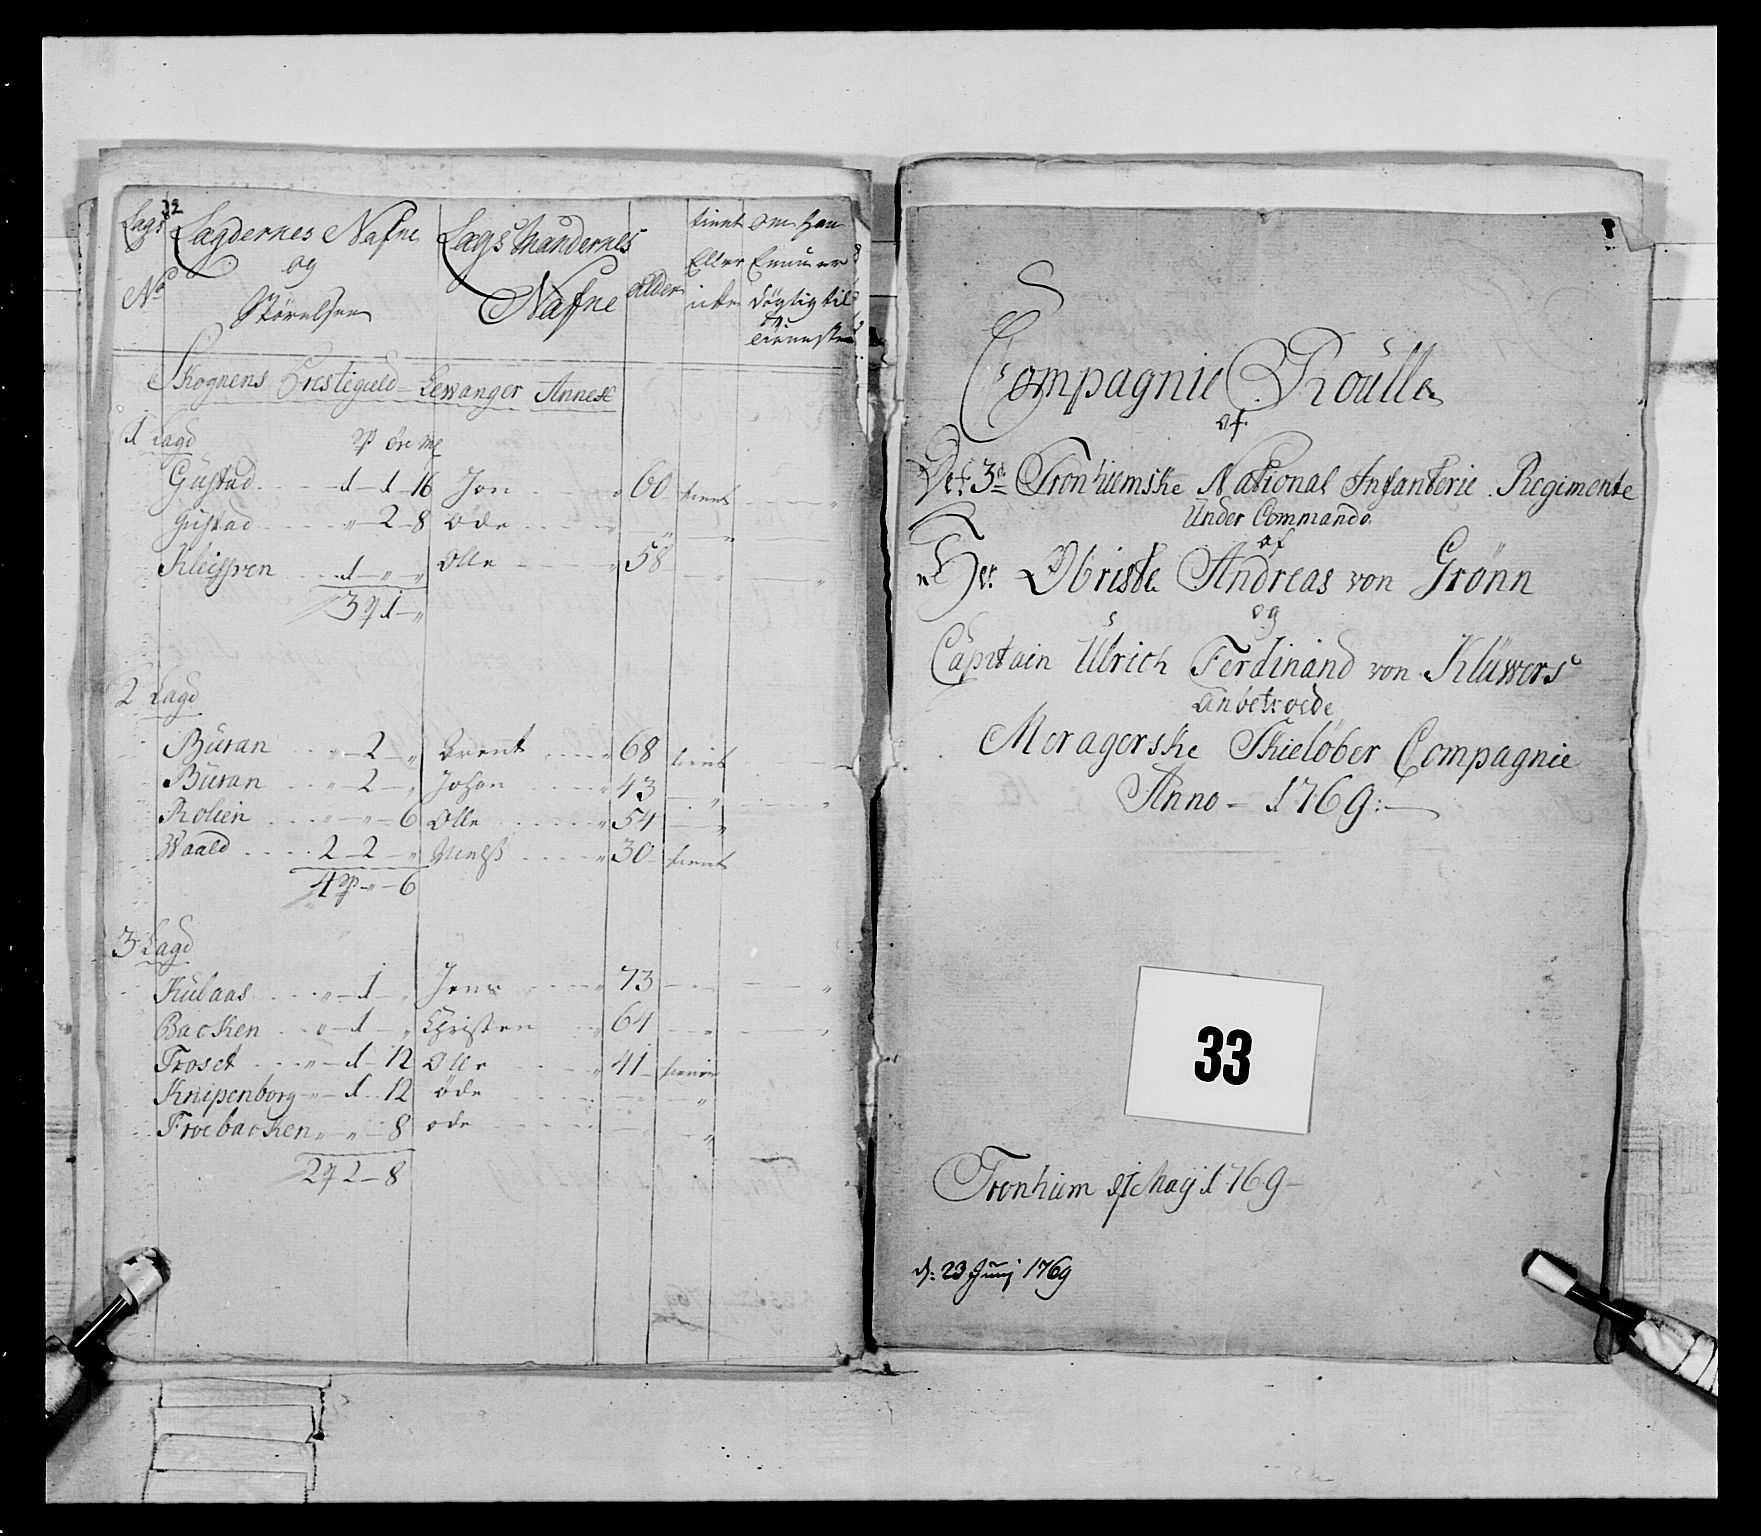 Lags Lagdernes Nafne Lags Mandernes tient om han
og Eller Ennu er
No Störelsen Nafne Alder icke dögtig til
tienesten
Skognens Prestegield Lewanger Annex
1 Lagd
Güstad 1 1 16 Jon 60 tient
Gustad " 2 8 öde " "
Kleifven 1 " " Olle 58 " "
3 1 "
2 Lagd
Büran " 2 " Brent 68 tient
Büran " 2 " Johan 43 " "
Rolien " " 6 Olle 54 "
Waald 2 2 " Nielss 30 tient
4 " 6
3 Lagd
Kulaas " 1 " Jens 73 "
Backen " 1 " Christen 64 " "
Troset " 1 12 Olle 41 tiener
Knipenborg " 1 12 öde "
Troebacken " " 8 ode "
2 2 8
Compagnie Roülla
af
Det 3de Tronhiemske National Infanterie Regimente
Under Commando
af
Hr. Obriste Andreas von Grönn
og
Capitain Ulrich Ferdinand von Klüwers
anbetroede
Meragerske Skielöber Compagnie
Anno - 1769:-
33
Tronhiem Maij 1769
d: 23 Junj 1769